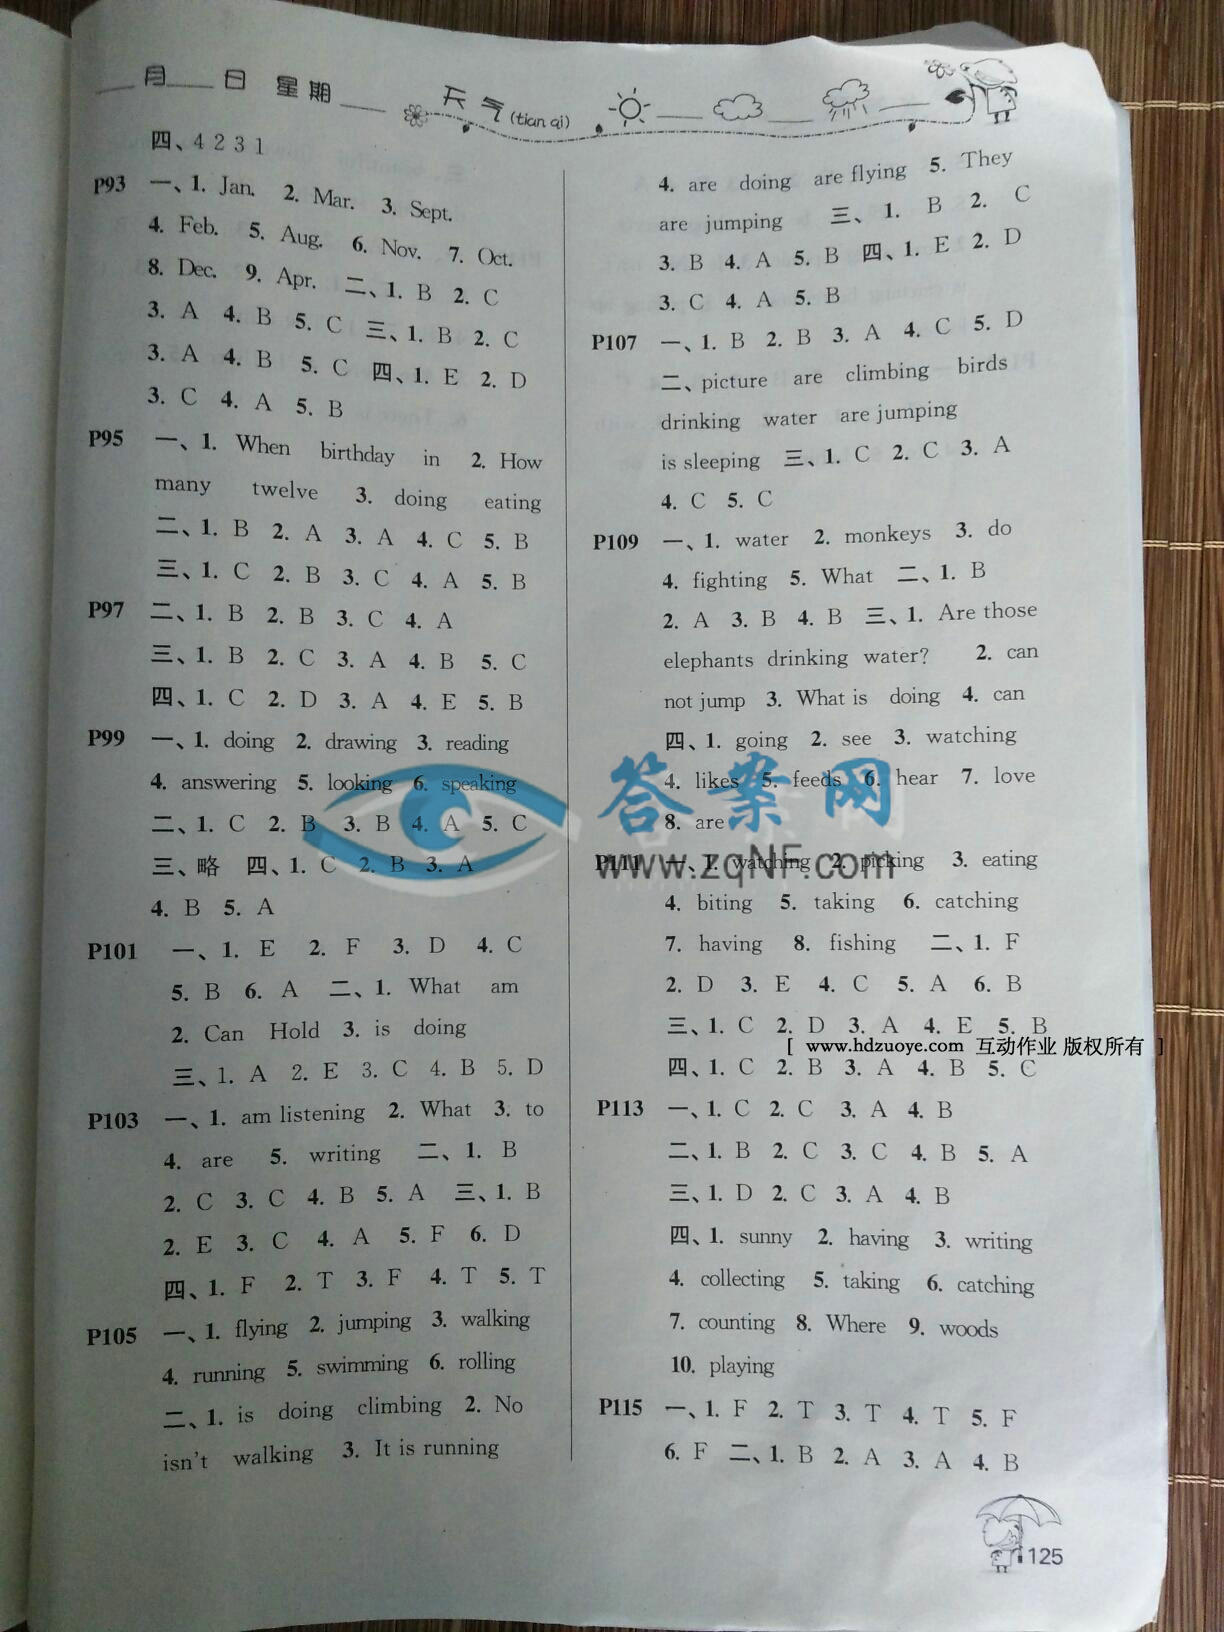 月 日 星期 天气(tian qi)
四、4 2 3 1
P93 一、1. Jan. 2. Mar. 3. Sept.
4. Feb. 5. Aug. 6. Nov. 7. Oct.
8. Dec. 9. Apr. 二、1. B 2. C
3. A 4. B 5. C 三、1. B 2. C
3. A 4. B 5. C 四、1. E 2. D
3. C 4. A 5. B
P95 一、1. When birthday in 2. How
many twelve 3. doing eating
二、1. B 2. A 3. A 4. C 5. B
三、1. C 2. B 3. C 4. A 5. B
P97 二、1. B 2. B 3. C 4. A
三、1. B 2. C 3. A 4. B 5. C
四、1. C 2. D 3. A 4. E 5. B
P99 一、1. doing 2. drawing 3. reading
4. answering 5. looking 6. speaking
二、1. C 2. B 3. B 4. A 5. C
三、略 四、1. C 2. B 3. A
4. B 5. A
P101 一、1. E 2. F 3. D 4. C
5. B 6. A 二、1. What am
2. Can Hold 3. is doing
三、1. A 2. E 3. C 4. B 5. D
P103 一、1. am listening 2. What 3. to
4. are 5. writing 二、1. B
2. C 3. C 4. B 5. A 三、1. B
2. E 3. C 4. A 5. F 6. D
四、1. F 2. T 3. F 4. T 5. T
P105 一、1. flying 2. jumping 3. walking
4. running 5. swimming 6. rolling
二、1. is doing climbing 2. No
isn't walking 3. It is running
4. are doing are flying 5. They
are jumping 三、1. B 2. C
3. B 4. A 5. B 四、1. E 2. D
3. C 4. A 5. B
P107 一、1. B 2. B 3. A 4. C 5. D
二、picture are climbing birds
drinking water are jumping
is sleeping 三、1. C 2. C 3. A
4. C 5. C
P109 一、1. water 2. monkeys 3. do
4. fighting 5. What 二、1. B
2. A 3. B 4. B 三、1. Are those
elephants drinking water? 2. can
not jump 3. What is doing 4. can
四、1. going 2. see 3. watching
4. likes 5. feeds 6. hear 7. love
8. are
P111 一、1. watching 2. picking 3. eating
4. biting 5. taking 6. catching
7. having 8. fishing 二、1. F
2. D 3. E 4. C 5. A 6. B
三、1. C 2. D 3. A 4. E 5. B
四、1. C 2. B 3. A 4. B 5. C
P113 一、1. C 2. C 3. A 4. B
二、1. B 2. C 3. C 4. B 5. A
三、1. D 2. C 3. A 4. B
四、1. sunny 2. having 3. writing
4. collecting 5. taking 6. catching
7. counting 8. Where 9. woods
10. playing
P115 一、1. F 2. T 3. T 4. T 5. F
6. F 二、1. B 2. A 3. A 4. B
125
答案网
www.zqNF.com
[ www.hdzuoye.com 互动作业 版权所有 ]